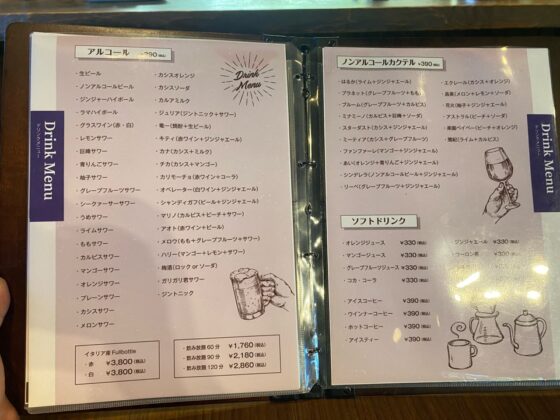 アルコール ¥390(税込)
Drink Menu
Drink Menu
ドリンクメニュー
・生ビール
・ノンアルコールビール
・ジンジャーハイボール
・ラマハイボール
・グラスワイン(赤・白)
・レモンサワー
・巨峰サワー
・青りんごサワー
・柚子サワー
・グレープフルーツサワー
・シークァーサーサワー
・うめサワー
・ライムサワー
・ももサワー
・カルピスサワー
・マンゴーサワー
・オレンジサワー
・プレーンサワー
・カシスサワー
・メロンサワー
・カシスオレンジ
・カシスソーダ
・カルアミルク
・ジュリア(ジントニック+サワー)
・竜一(焼酎+生ビール)
・キティ(赤ワイン+ジンジャエール)
・カナ(カシス+ミルク)
・チカ(カシス+マンゴー)
・カリモーチョ(赤ワイン+コーラ)
・オペレーター(白ワイン+ジンジャエール)
・シャンディガフ(ビール+ジンジャエール)
・マリノ(カルピス+ピーチ+サワー)
・アオト(赤ワイン+ビール)
・メロウ(もも+グレープフルーツ+サワー)
・ハリー(マンゴー+レモン+サワー)
・梅酒(ロック or ソーダ)
・ガリガリ君サワー
・ジントニック
イタリア産 Fullbottle
・赤 ¥3,800(税込)
・白 ¥3,800(税込)
・飲み放題 60分 ¥1,760(税込)
・飲み放題 90分 ¥2,180(税込)
・飲み放題 120分 ¥2,860(税込)
ノンアルコールカクテル ¥390(税込)
Drink Menu
ドリンクメニュー
・はるか(ライム+ジンジャエール)
・プラネット(グレープフルーツ+もも)
・ブルーム(グレープフルーツ+カルピス)
・ミナミーノ(カルピス+巨峰+ソーダ)
・スターダスト(カシス+ジンジャエール)
・ミーティア(カシス+グレープフルーツ)
・ファンファーレ(マンゴー+ジンジャエール)
・あいオレンジ+青りんご+ジンジャエール)
・シンデレラ(ノンアルコールビール+ジンジャエール)
・リーベ(グレープフルーツ+ジンジャエール)
・エクレール(カシス+オレンジ)
・晶葉(メロン+レモン+ソーダ)
・花火(柚子+ジンジャエール)
・アストラル(ピーチ+ソーダ)
・楽園ベイベー(ピーチ+オレンジ)
(ライム+カルピス)
ソフトドリンク
・オレンジジュース ¥330(税込)
・マンゴージュース ¥330(税込)
・グレープフルーツジュース ¥330(税込)
・コカ・コーラ ¥330(税込)
・ジンジャエール ¥330(税込)
・ウーロン茶
・アイスコーヒー ¥390(税込)
・ウインナーコーヒー ¥390(税込)
・ホットコーヒー ¥390(税込)
・アイスティー ¥390(税込)